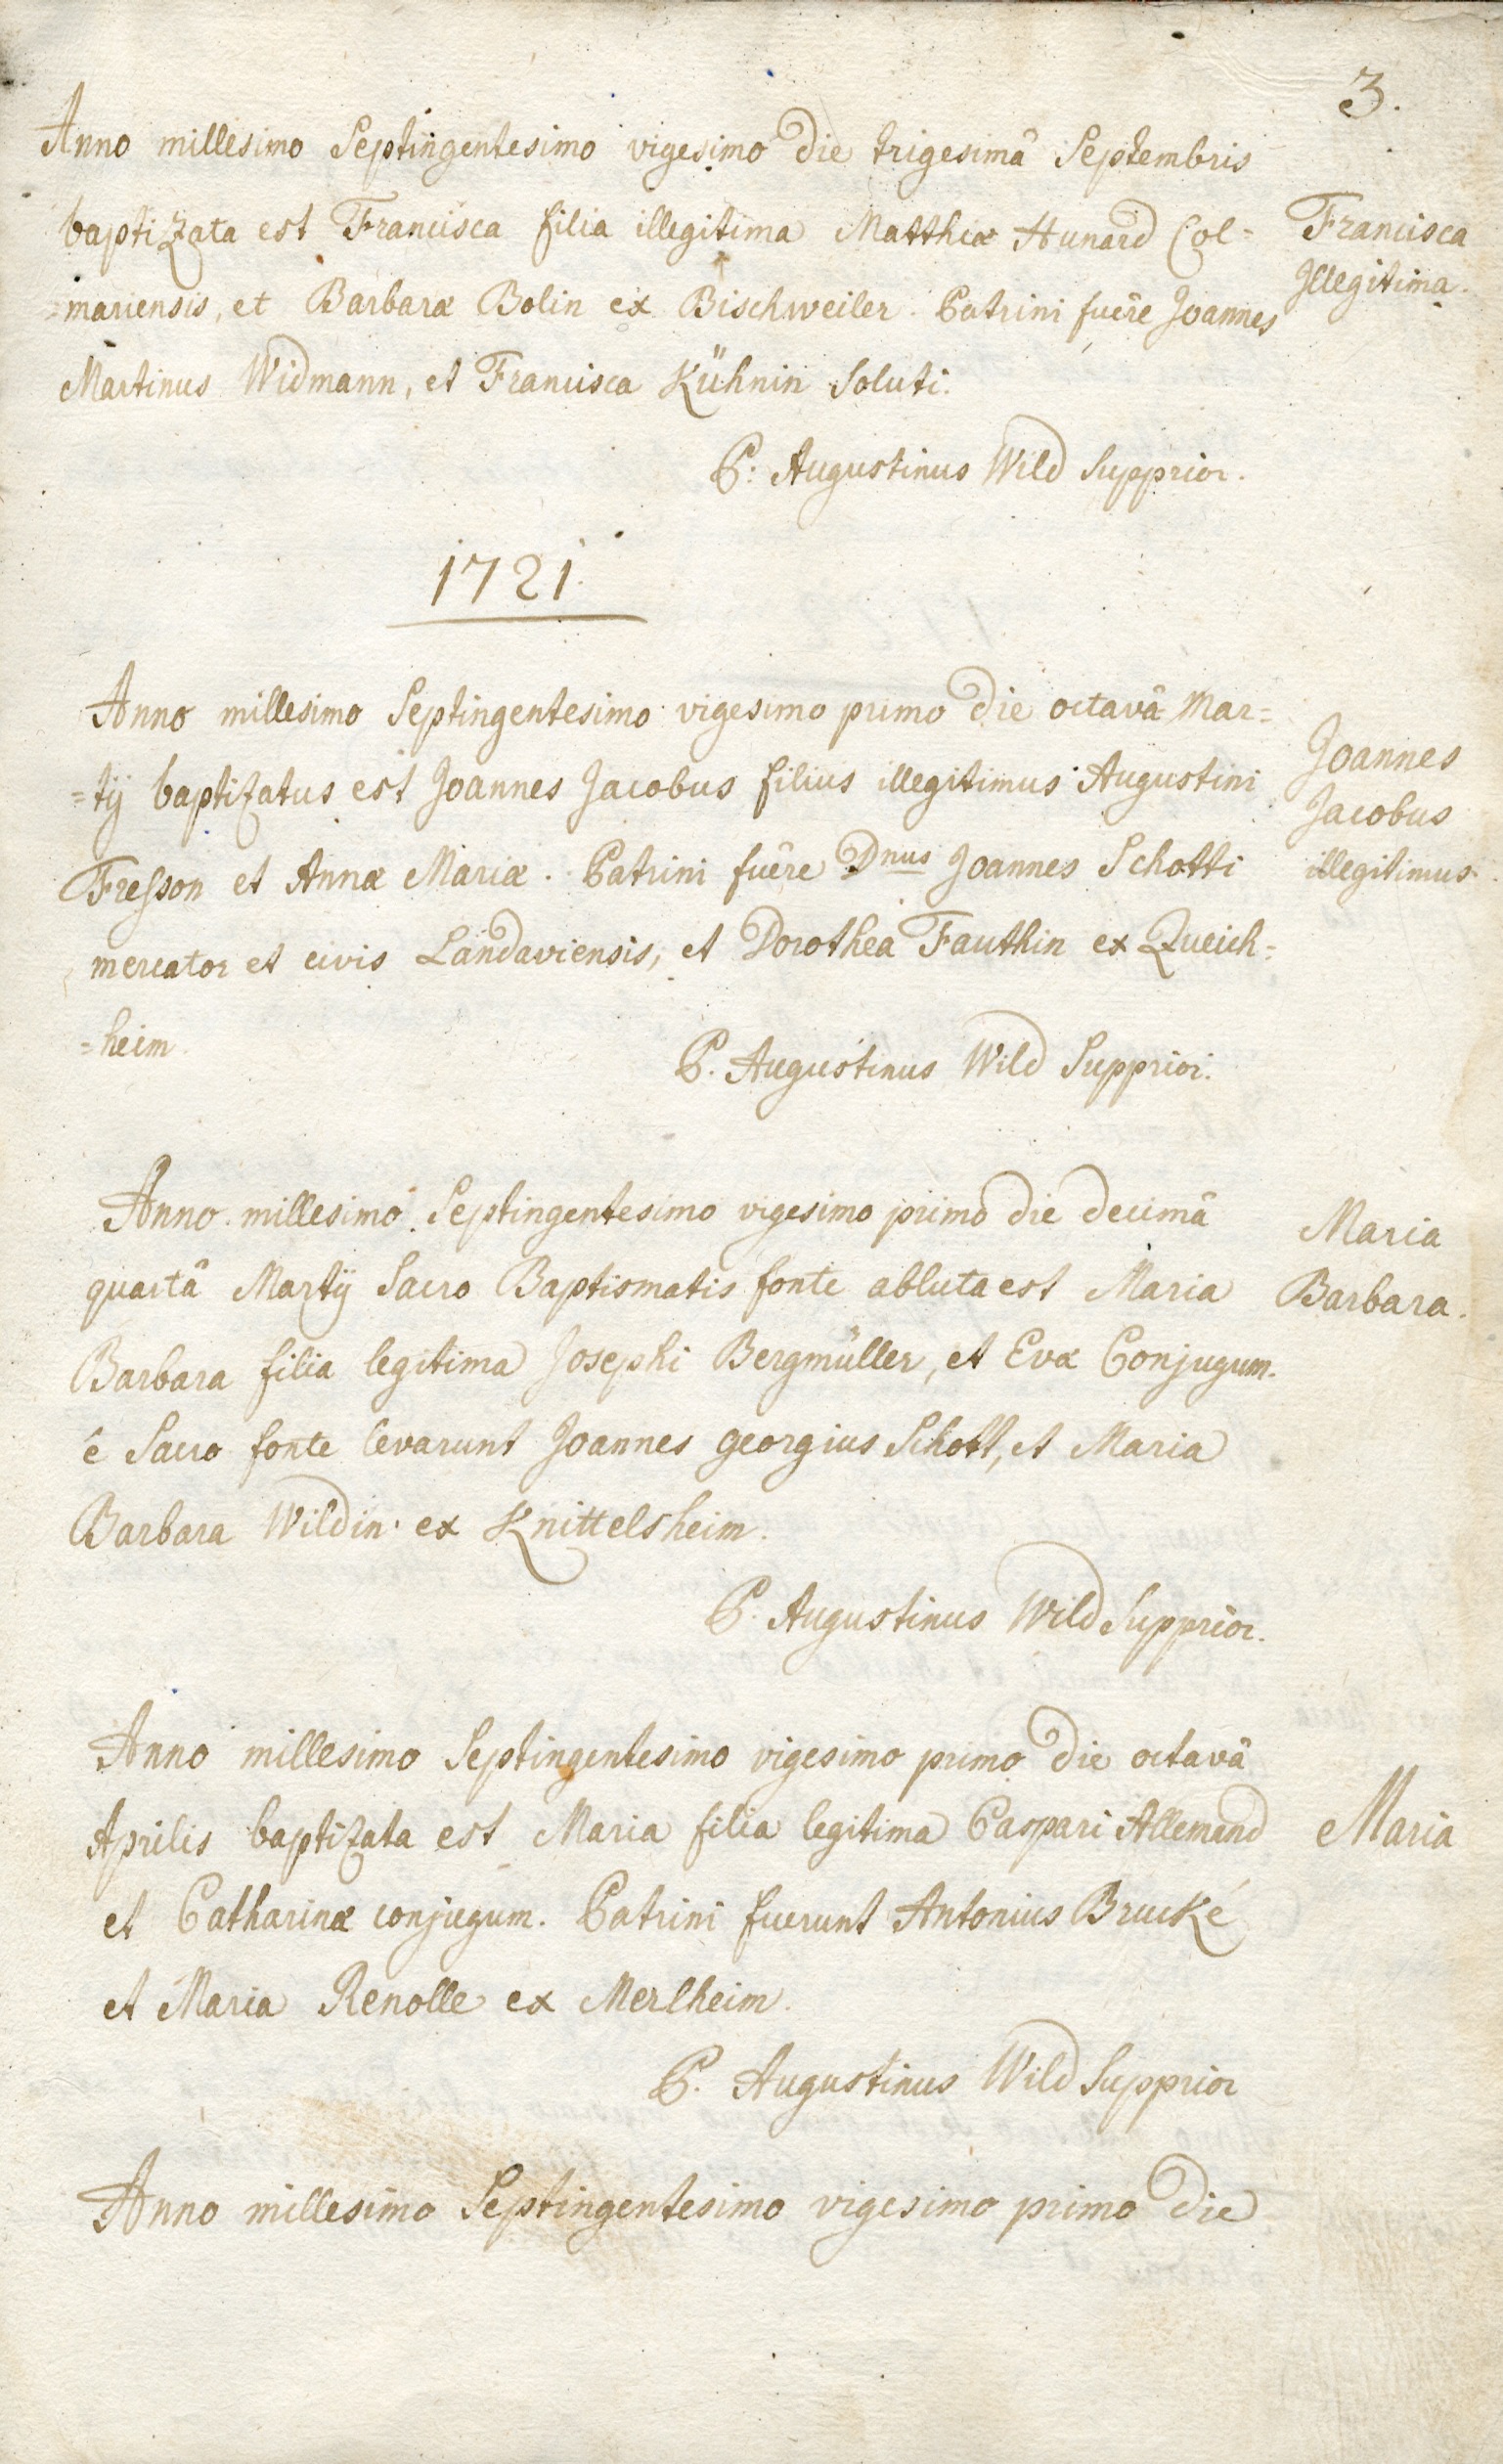 3.
Anno millesimo Septingentesimo vigesimo die trigesimâ Septembris
baptizata est Francisca filia illegitima Matthiæ Hunard Col=
=mariensis, et Barbaræ Bolin ex Bischweiler. Patrini fuêre Joannes
Martinus Widmann, et Francisca Kühnin Soluti.
Francisca
Illegitima.
P. Augustinus Wild Supprior.
1721.
Anno millesimo Septingentesimo vigesimo primo die octavâ Mar=
=tÿ baptizatus est Joannes Jacobus filius illegitimus Augustini
Fresson et Annæ Mariæ. Patrini fuêre Dnus Joannes Schotti
mercator et civis Landaviensis, et Dorothea Fauthin ex Queich=
=heim.
Joannes
Jacobus
illegitimus.
P. Augustinus Wild Supprior.
Anno millesimo Septingentesimo vigesimo primo die decimâ
quartâ Martÿ Sacro Baptismatis fonte abluta est Maria
Barbara filia legitima Josephi Bergmüller, et Evæ Conjugum.
ê Sacro fonte levarunt Joannes georgius Schott, et Maria
Barbara Wildin ex Knittelsheim.
Maria
Barbara.
P. Augustinus Wild Supprior.
Anno millesimo Septingentesimo vigesimo primo die octavâ
Aprilis baptizata est Maria filia legitima Caspari Allemand
et Catharinæ conjugum. Patrini fuerunt Antonius Brucké
et Maria Renolle ex Merlheim.
Maria
P. Augustinus Wild Supprior
Anno millesimo Septingentesimo vigesimo primo die